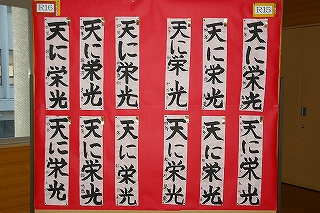 R16
R15
天に栄光
天に栄光
天に栄光
天に栄光
天に栄光
天に栄光
天に栄光
天に栄光
天に栄光
天に栄光
天に栄光
天に栄光